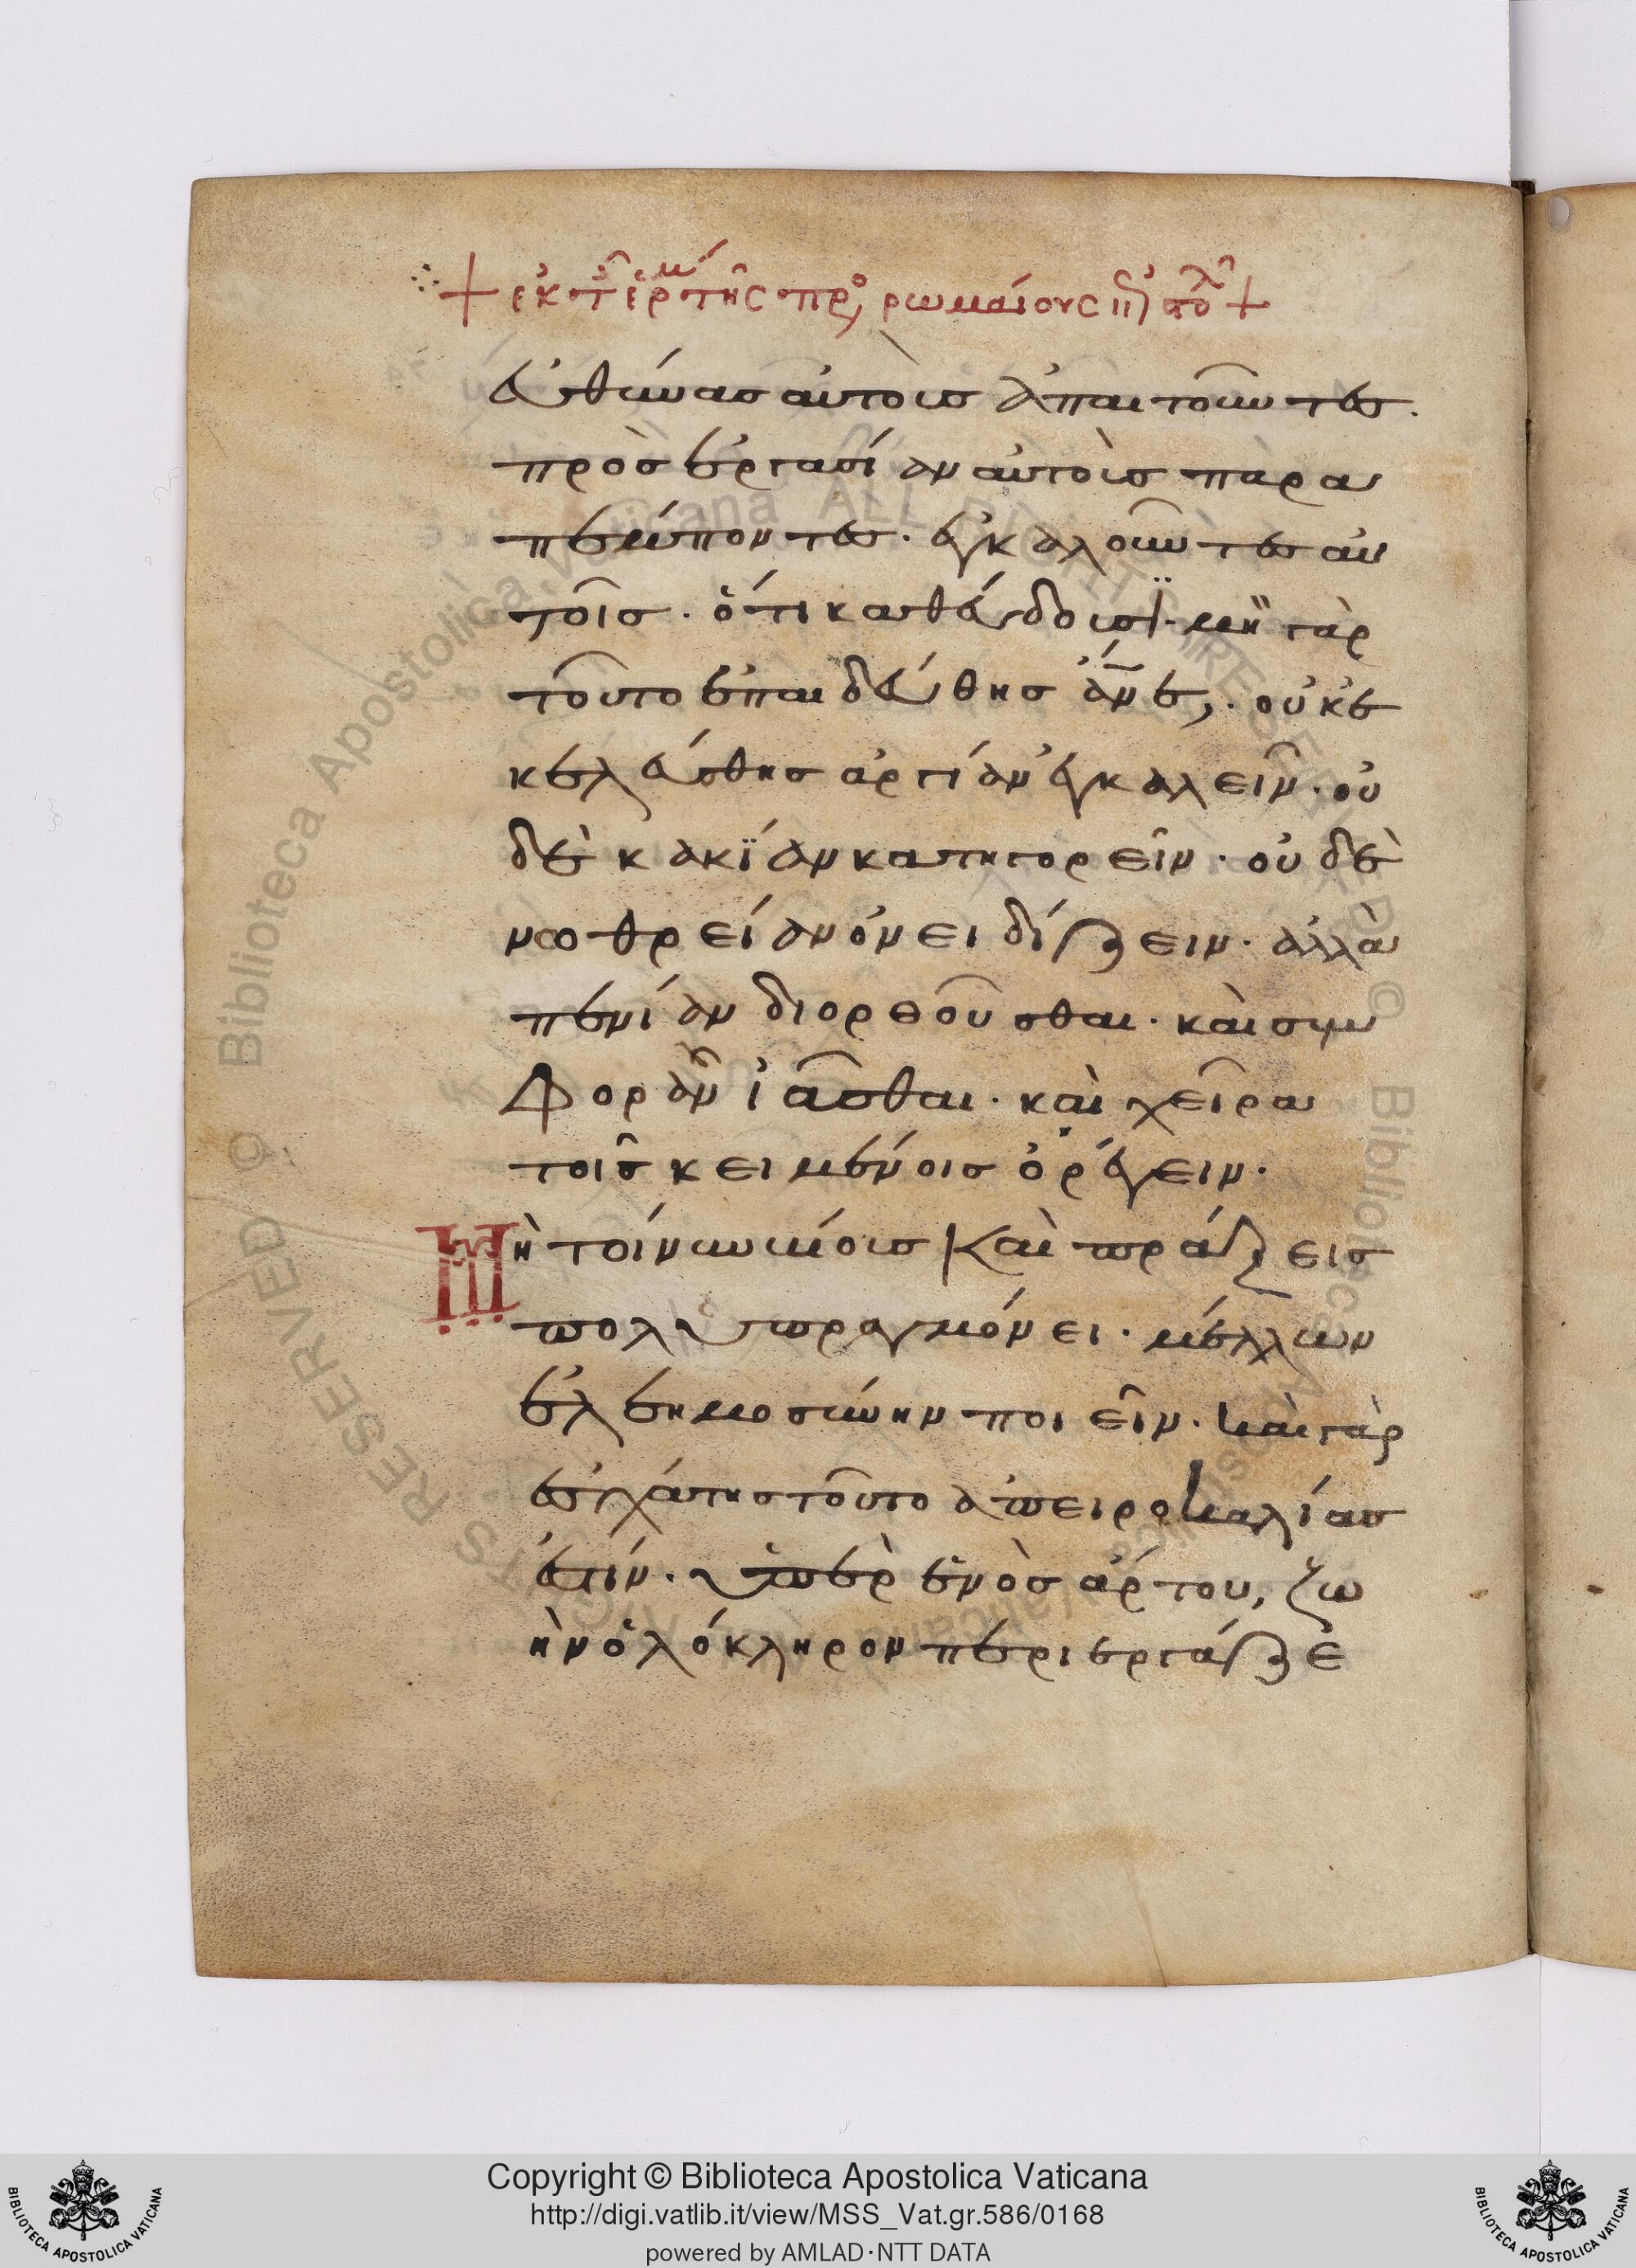 + ἐκ τ ἑρμ τῆς πρ ρωμαίους ἐπ ἀποστολ +
εὐθύνας αὐτοὺς ἀπαιτοῦντες.
πρὸς ἐργασίαν αὐτοὺς παρα
πέμποντες. ἐγκαλοῦντες αὐ
τοῖς. ὅτι καθεύδουσϊ. μὴ γὰρ
τοῦτο ἐπαιδεύθης ἄνε, οὐκ ἐ
κελεύσθης ἀργίαν ἐγκαλεῖν. οὐ
δὲ κακϊαν κατηγορεῖν. οὐδὲ
νωθρείαν ὀνειδίζειν. ἀλλὰ
πενίαν διορθοῦσθαι. καὶ συμ
φορὰν ἰᾶσθαι. καὶ χεῖρα
τοῖς κειμένοις ὀρέγειν.
Μὴ τοίνυν βίους καὶ πράξεις
πολυπραγμόνει. μέλλων
ἐλεημοσύνην ποιεῖν. καὶ γὰρ
ἐσχάτης τοῦτο ἀπειροκαλίας
ἐστίν. ὑπὲρ ἑνὸς ἄρτου, ζω
ὴν ὁλόκληρον περιεργάζε
Copyright © Biblioteca Apostolica Vaticana
http://digi.vatlib.it/view/MSS_Vat.gr.586/0168
powered by AMLAD·NTT DATA
BIBLIOTECA APOSTOLICA VATICANA
BIBLIOTECA APOSTOLICA VATICANA